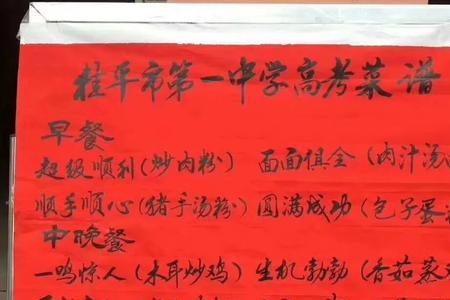 桂平市第一中学高考菜谱
早餐
超级顺利(炒肉粉) 面面俱全(肉汁汤
顺手顺心(猪手汤粉) 圆满成功(包子蛋
中晚餐
一鸣惊人(木耳炒鸡) 生机勃勃(香茹蒸